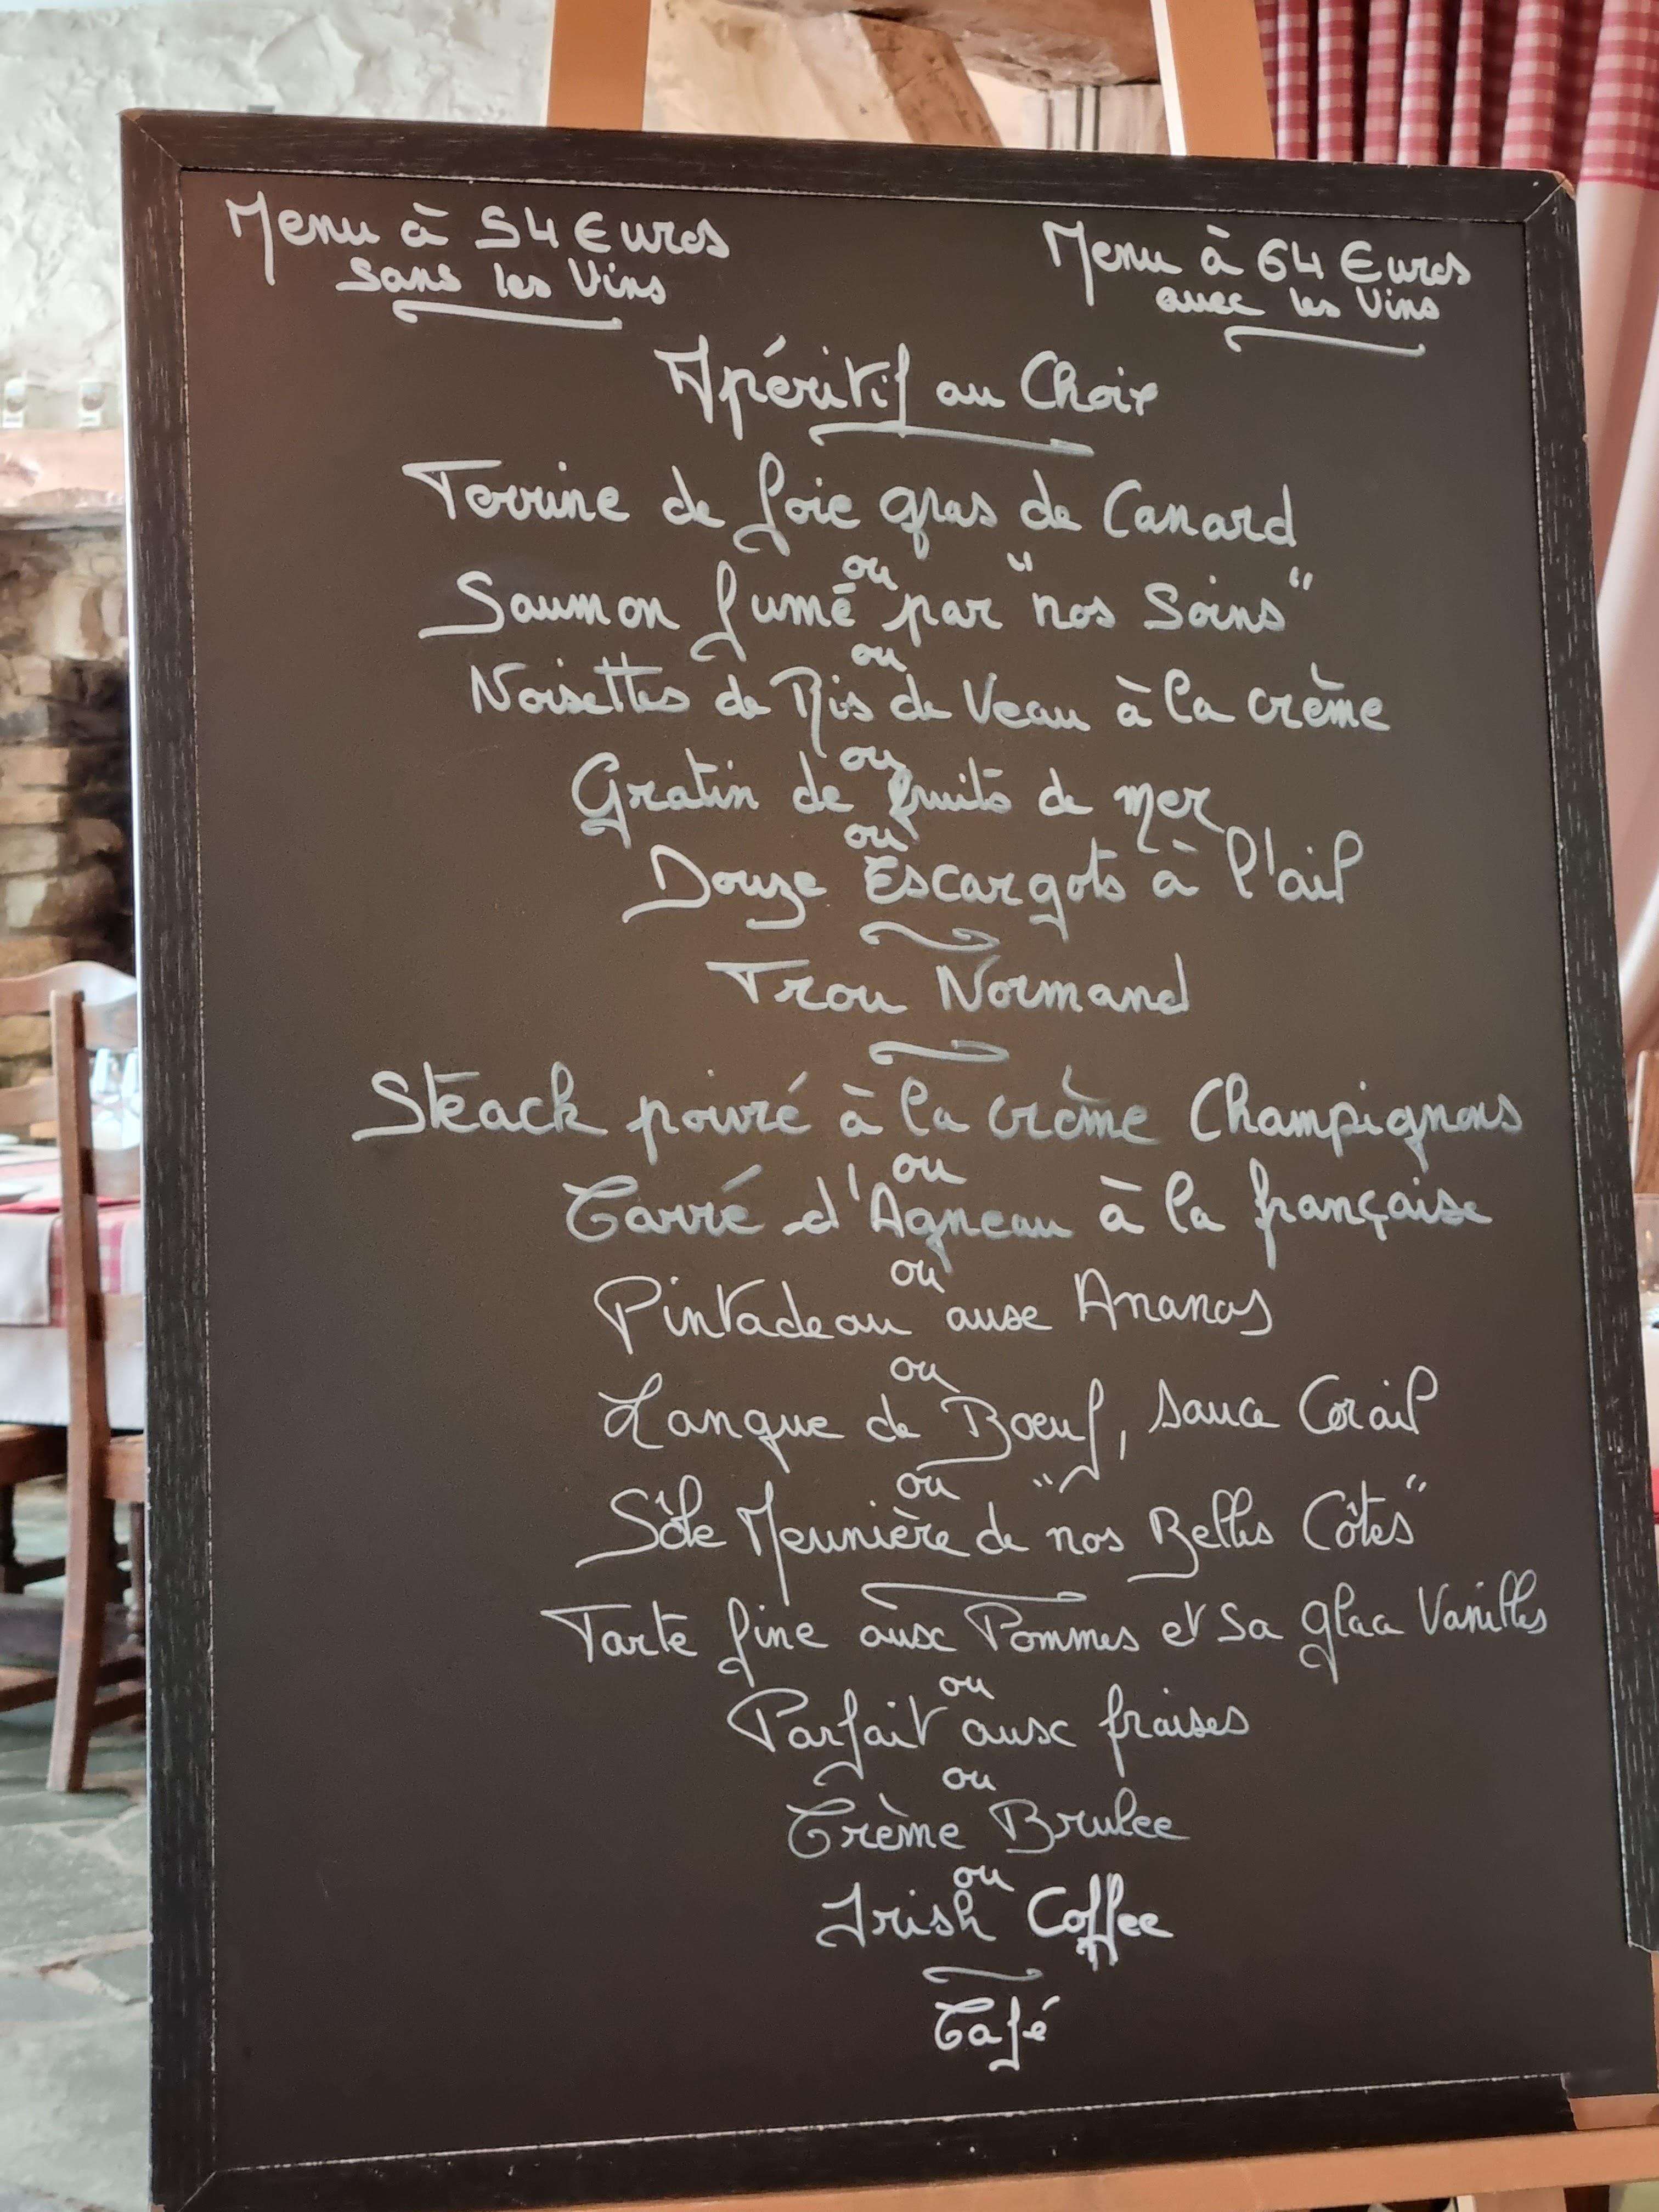 Menu à 54 Euros
sans les Vins
Menu à 64 Euros
avec les Vins
Apéritif au Choix
Terrine de foie gras de Canard
ou
Saumon fumé par "nos Soins"
ou
Noisettes de Ris de Veau à la crème
ou
Gratin de fruits de mer
ou
Douze Escargots à l'ail
Trou Normand
Steack poivré à la crème Champignons
ou
Carré d'Agneau à la française
ou
Pintadeau aux Ananas
ou
Langue de Boeuf, sauce Corail
ou
Sôle Meunière de "nos Belles Côtes"
Tarte fine aux Pommes et sa glace Vanilles
ou
Parfait aux fraises
ou
Crème Brulee
ou
Irish Coffee
Café